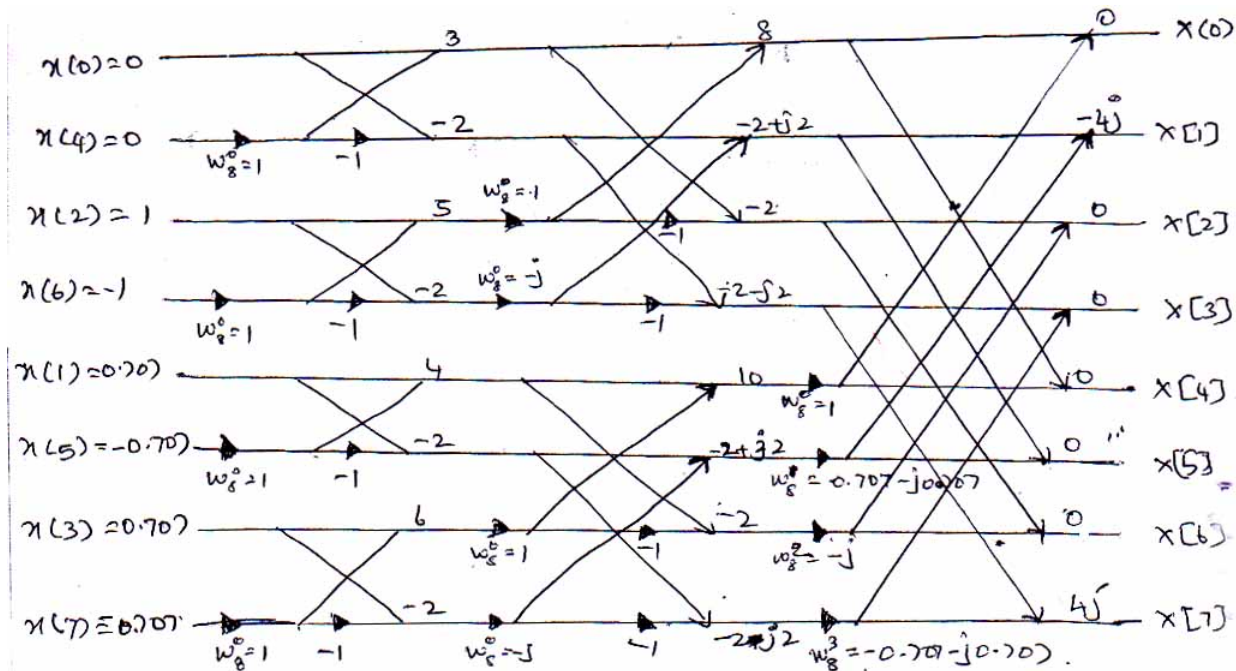 x(0)=0 3 8 0 X(0)
x(4)=0 w₈⁰=1 -1 -2 -2+j2 -4j X[1]
x(2)=1 5 w₈⁰=1 -1 -2 0 X[2]
x(6)=-1 w₈⁰=1 -1 -2 w₈⁰=-j -1 0 X[3]
x(1)=0.707 4 10 w₈⁰=1 0 X[4]
x(5)=-0.707 w₈⁰=1 -1 -2 -2+j2 =0.707-j0.707 0 X[5]
x(3)=0.707 6 w₈⁰=1 -1 -2 w₈²=-j 0 X[6]
x(7)=0.707 w₈⁰=1 -1 -2 w₈⁰=-j -1 w₈³=-0.707-j0.707 4j X[7]